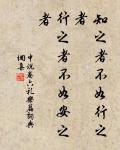 知之者不如行之
者
行之者不如安之
者
中說卷六禮樂篇詞典
網集